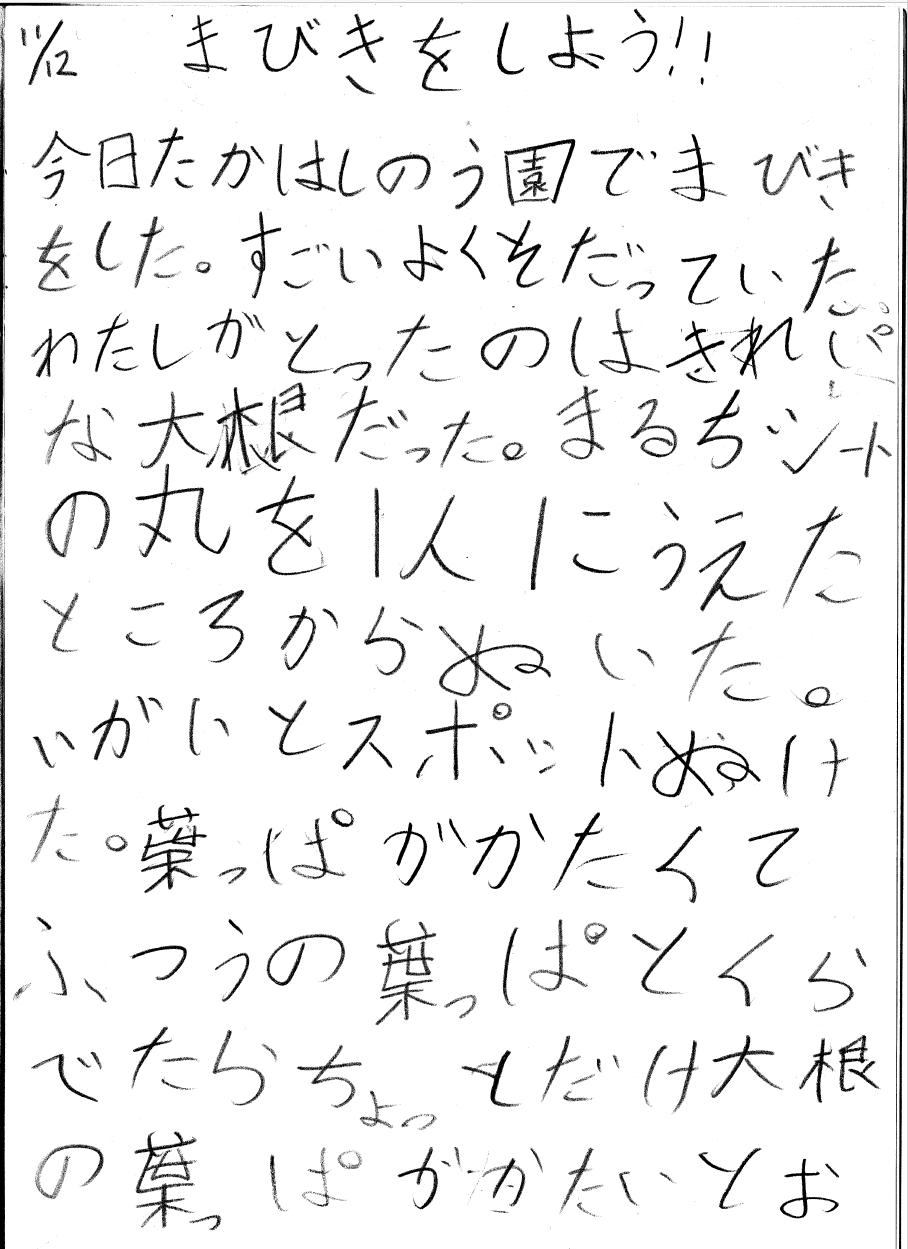 11/12 まびきをしよう!!
今日たかはしのう園でまびき
をした。すごいよくそだっていた。
わたしがとったのはきれい
な大根だった。まるちシート
の丸を1人1こうえた
ところからぬいた。
いがいとスポットぬけ
た。葉っぱがかたくて
ふつうの葉っぱとくら
でたらちょっとだけ大根
の葉っぱがかたいとお